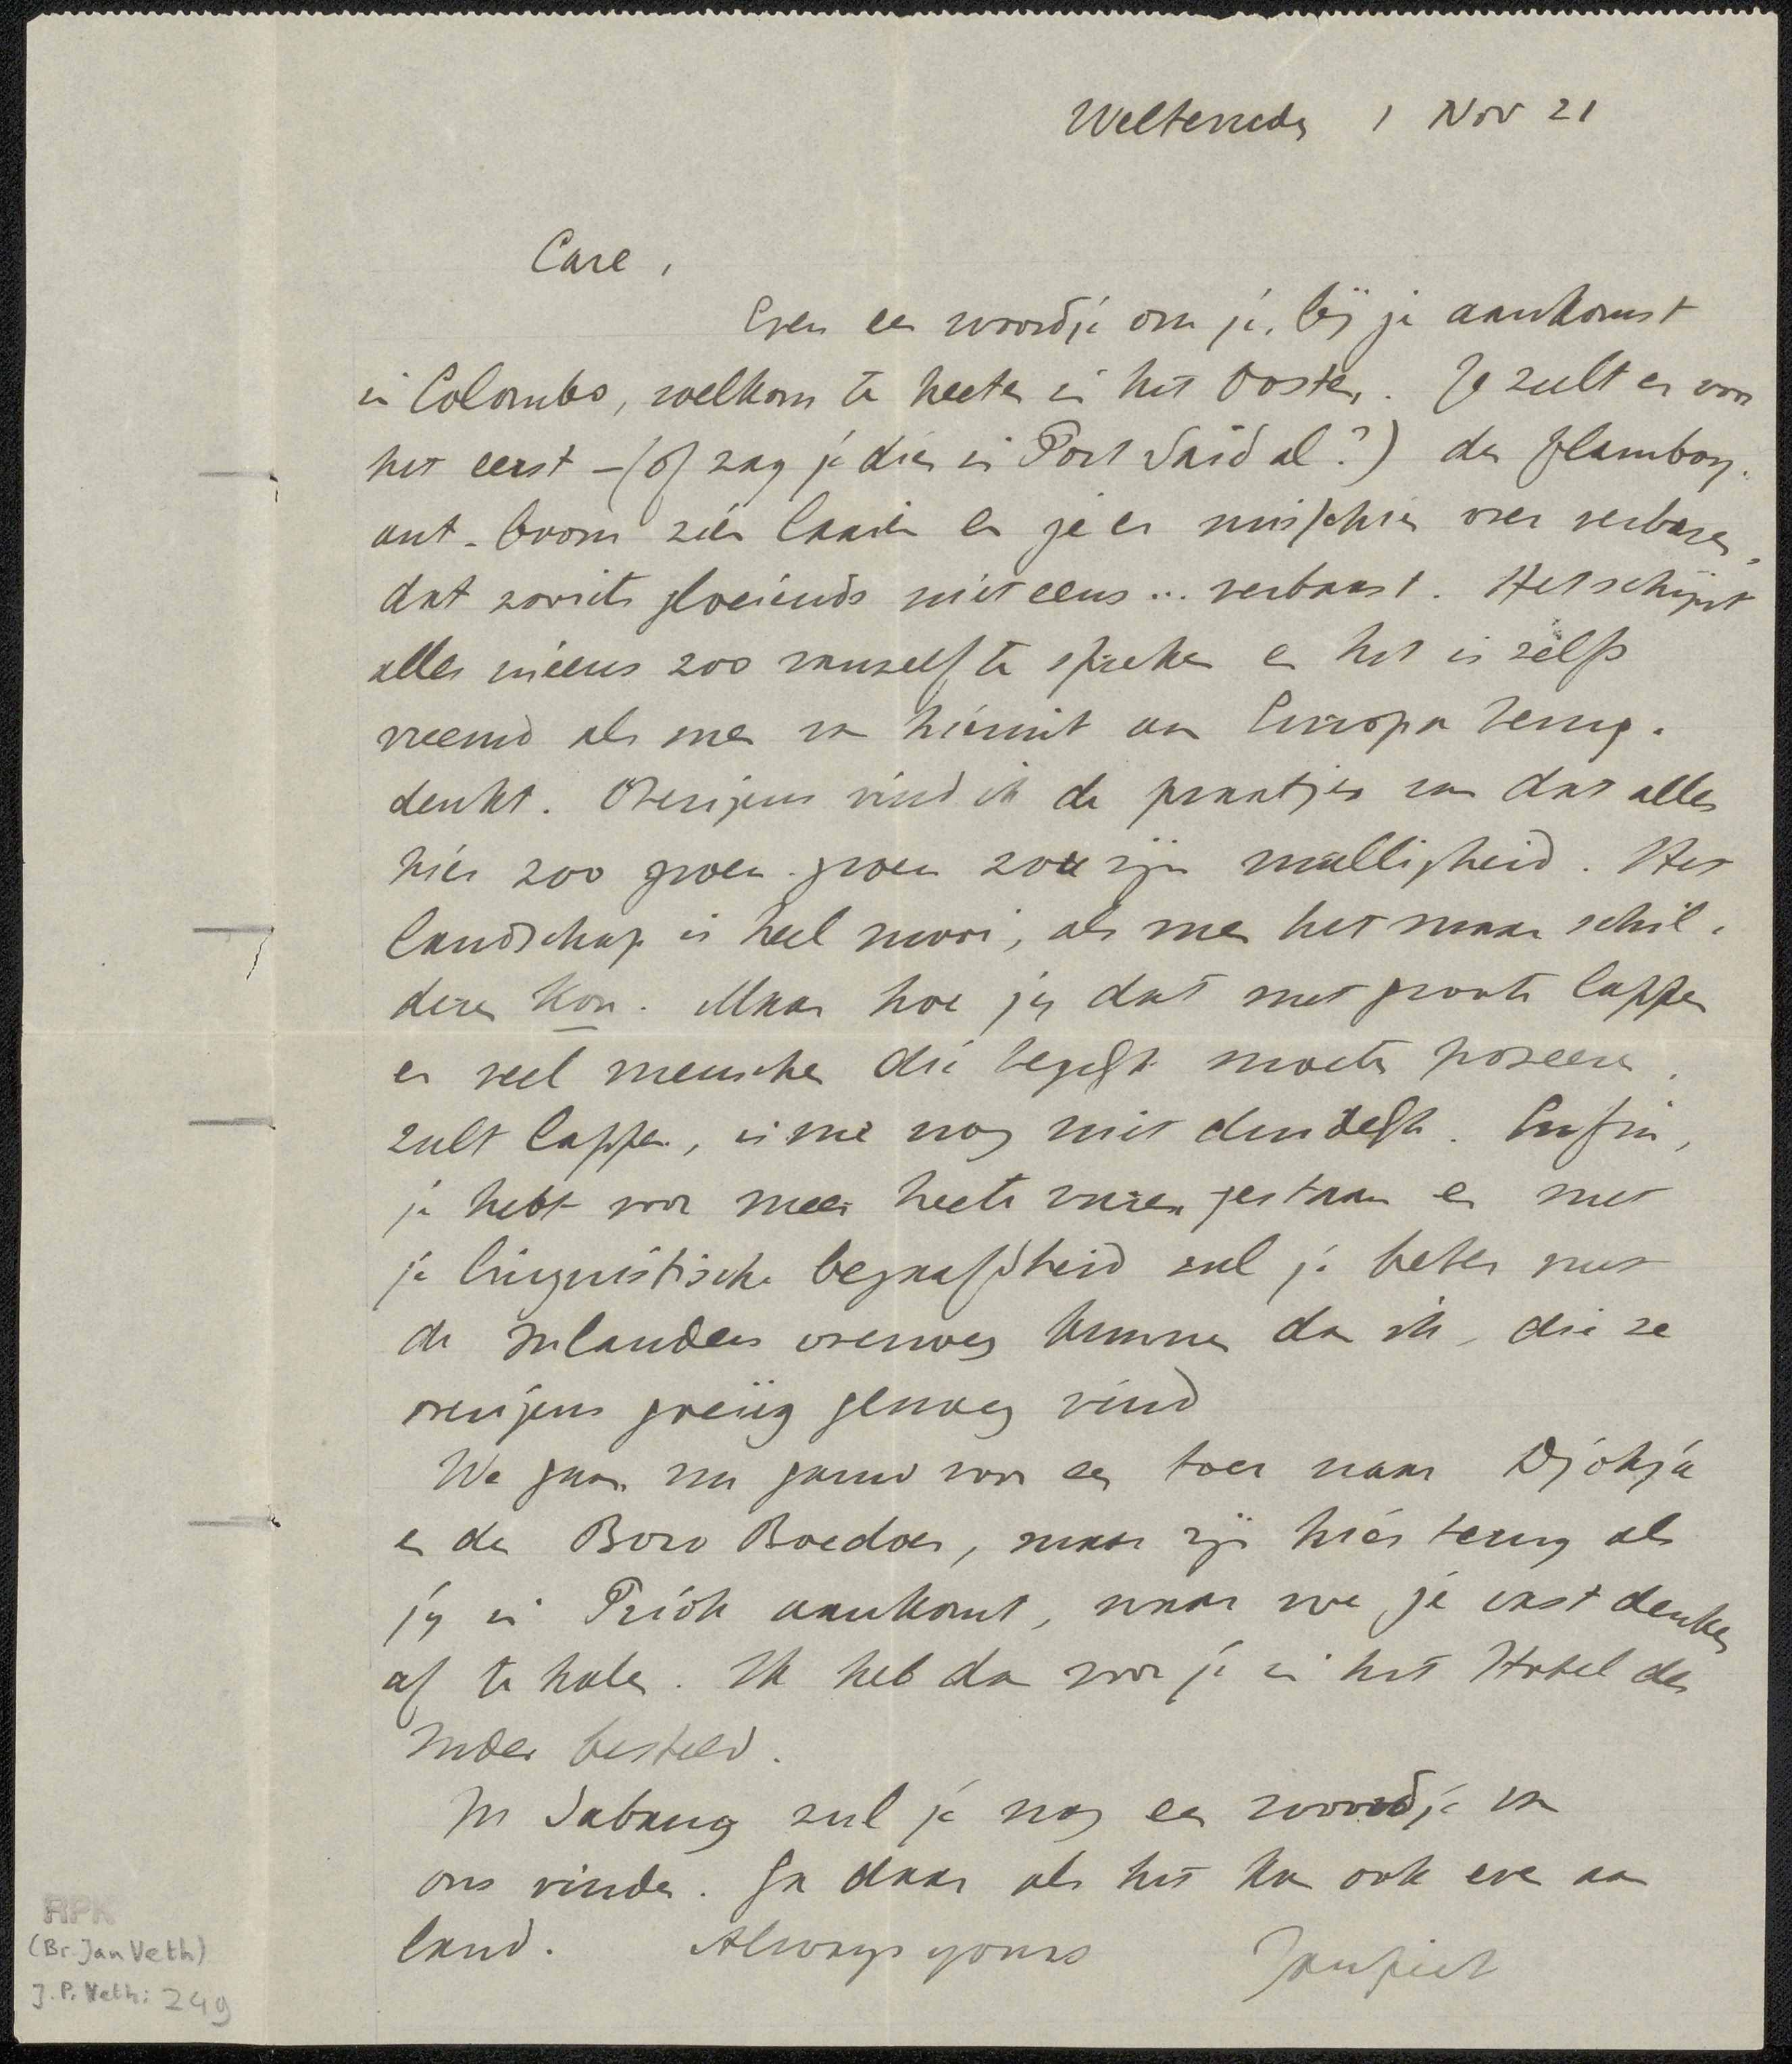 Weltevreden 1 Nov 21
Care,
Even een woordje om je, bij je aankomst
in Colombo, welkom te heeten in het Oosten. Je zult er voor
het eerst – (of zag je dien in Port Saïd al?) den flamboy-
ant-boom zien laaien en je er misschien over verbazen,
dat zooiets gloeiends niet eens ... verbaast. Het schijnt
alles ineens zoo vanzelf te spreken en het is zelfs
vreemd als men van hieruit aan Europa terug-
denkt. Overigens vind ik de praatjes van dat alles
hier zoo groen-groen zou zijn malligheid. Het
landschap is heel mooi, als men het maar schil-
deren kon. Maar hoe jij dat met groote lappen
en veel menschen die tegelijk moeten poseeren,
zult lappen, is me nog niet duidelijk. Enfin,
je hebt voor meer heete vuren gestaan en met
je linguistische begaafdheid zul je beter met
de Inlanders overweg kunnen dan ik, die ze
overigens groeiig genoeg vind
We gaan nu gauw voor een toer naar Djokja
en den Boro Boedoer, maar zijn hier terug als
jij in Priok aankomt, waar we je vast denken
af te halen. Ik heb dan voor je in het Hotel des
Indes besteld.
In Sabang zul je nog een woordje van
ons vinden. Ga daar als het kan ook even aan
land. Always yours Janpiet
RPK
(Br. Jan Veth)
J. P. Veth: 249